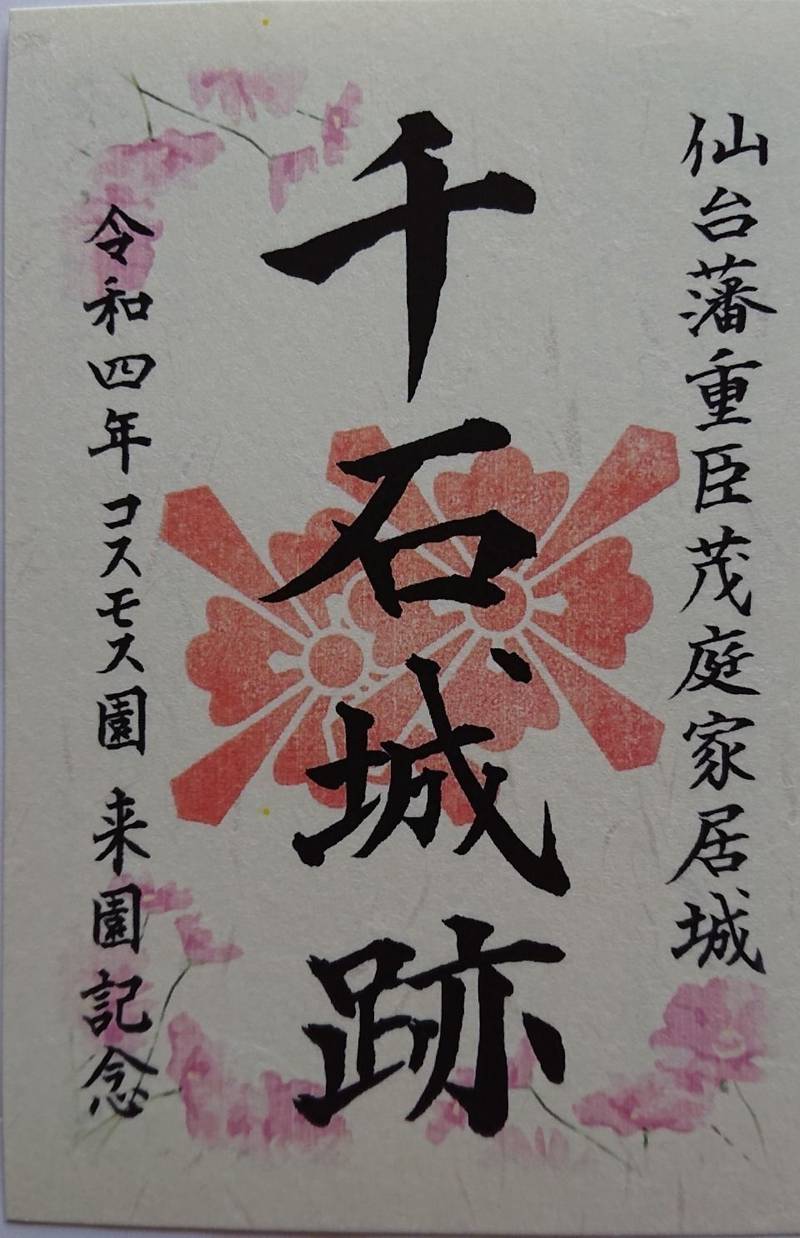 仙台藩重臣茂庭家居城
千石城跡
令和四年コスモス園 来園記念